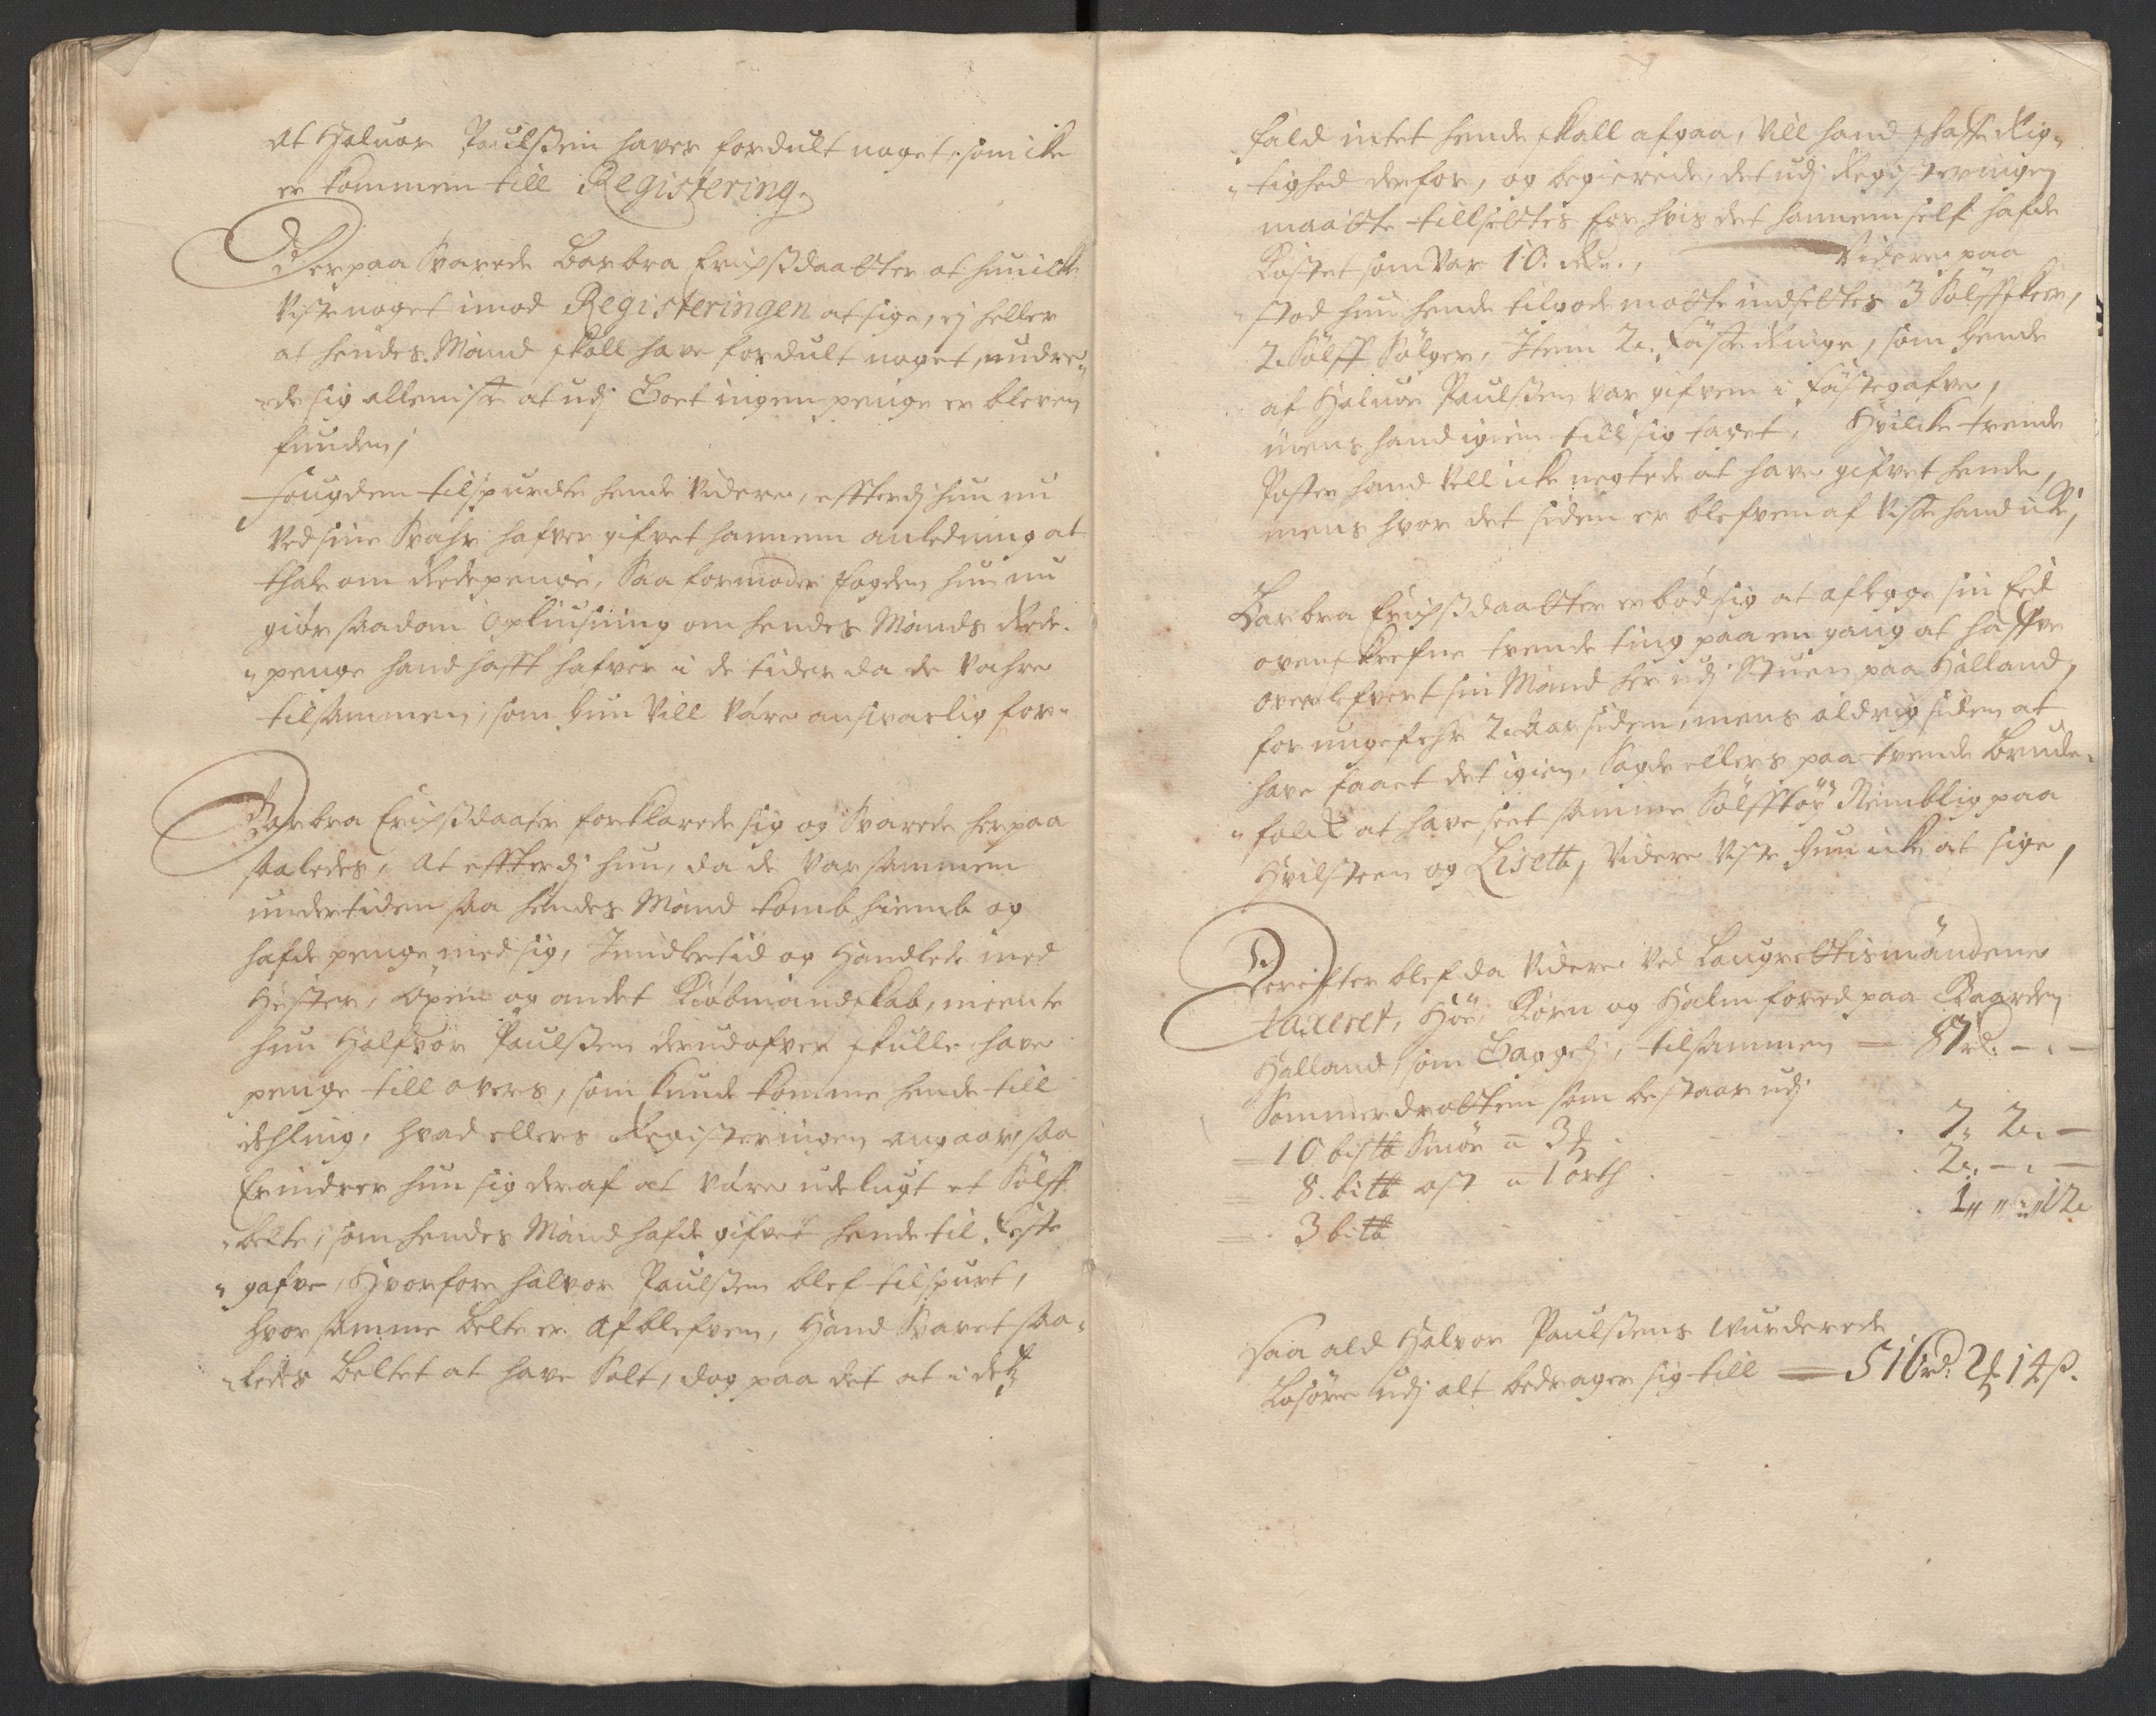 At Haluor Paulssen haver fordult noget, som icke
er kommen till Registering.
Derpaa Svarede Barbra Erichssdaatter at hun icke
Viste noget imod Registeringen at sige, ej heller
at hendes Mand skall have fordult noget, undre-
ede sig alleniste at udj Boet ingen penge er bleven
funden,
Fougden tilspurdte hende videre, effterdj hun nu
Ved sine Svahr hafver gifvet hannem anledning at
thale om Redepenge, Saa formoder fogden hun nu
giør saadan Opliusning om hendes Mands Rede-
penge hand hafft hafver i de tider da de Vahre
tilsammen, som hun Vill være ansvarlig for-
Barbra Erichssdaater forklarede sig og Svarede herpaa
saaledes, At effterdj hun, da de var sammen
undertiden saa hendes Mand komb hiemb og
hafde penge med sig, Imidlertid og Handlede med
Hester, Øxen og andet Kiøbmandskab, meente
hun Halfvor Paulssen derudofver skulle have
penge till overs, som kunde komme hende till
dehling, hvad ellers Registeringen angaar, saa
Erindrer hun sig deraf at være udelugt et Sølff
belte, som hendes Mand hafde gifvet hende til Feste
gafve, Hvorfore halvor Paulssen blef tilspurt,
hvor samme belte er Afblefven, Hand Svaret saa-
ledes Beltet at have Solt, dog paa det at i det
fald intet hende skall afgaa, Vill hand skaffe Rig-
tighed derfor, og begierede, det udj Registeringen
maatte tillsettes for hvis det hannem self hafde
Kostet som Var 10. Rdr., Videre paa
stod hun hende tilgode motte indsettes 3 Sølffskeer,
2 Sølff Sølger, Item 2. Fæste Ringe, som hende
af Haluor Paulssen var gifven i Fæstegafve,
mens hand igien till sig taget, Hvilcke trende
Poster hand Vell icke negtede at have gifvet hende,
mens hvor det siden er blefven af Viste hand icke,
Barbra Erichssdaatter erbød sig at aflegge sin Eed
ovenskrefne trende ting paa en gang at haffve
overlefvert sin Mand her udj Stuen paa Halland,
for ungefehr 2. Aar siden, mens aldrig siden at
have faaet det igien, Sagde ellers paa tvende Brude-
folck at have seet samme Sølfftøy Nemblig paa
Hvilsteen og Lisett, Videre Viste hun icke at sige,
Derefter blef da Videre Ved Laugrettismændene
Taxeret, Høe, Korn og Halm forred paa Gaarden
Halland, som tilsammen — 87 rd: - . -
Sommerdrotten som bestaar udj
10 bistb Smør a 3
7. 2. -
8. bitb ost a 1 orth
2. - . -
3 bitb
1 " " 12
Saa ald Halvor Paulssens Wurderede
Løsøre udj alt bedrager sig till — 516 rd: 2 14 ß.